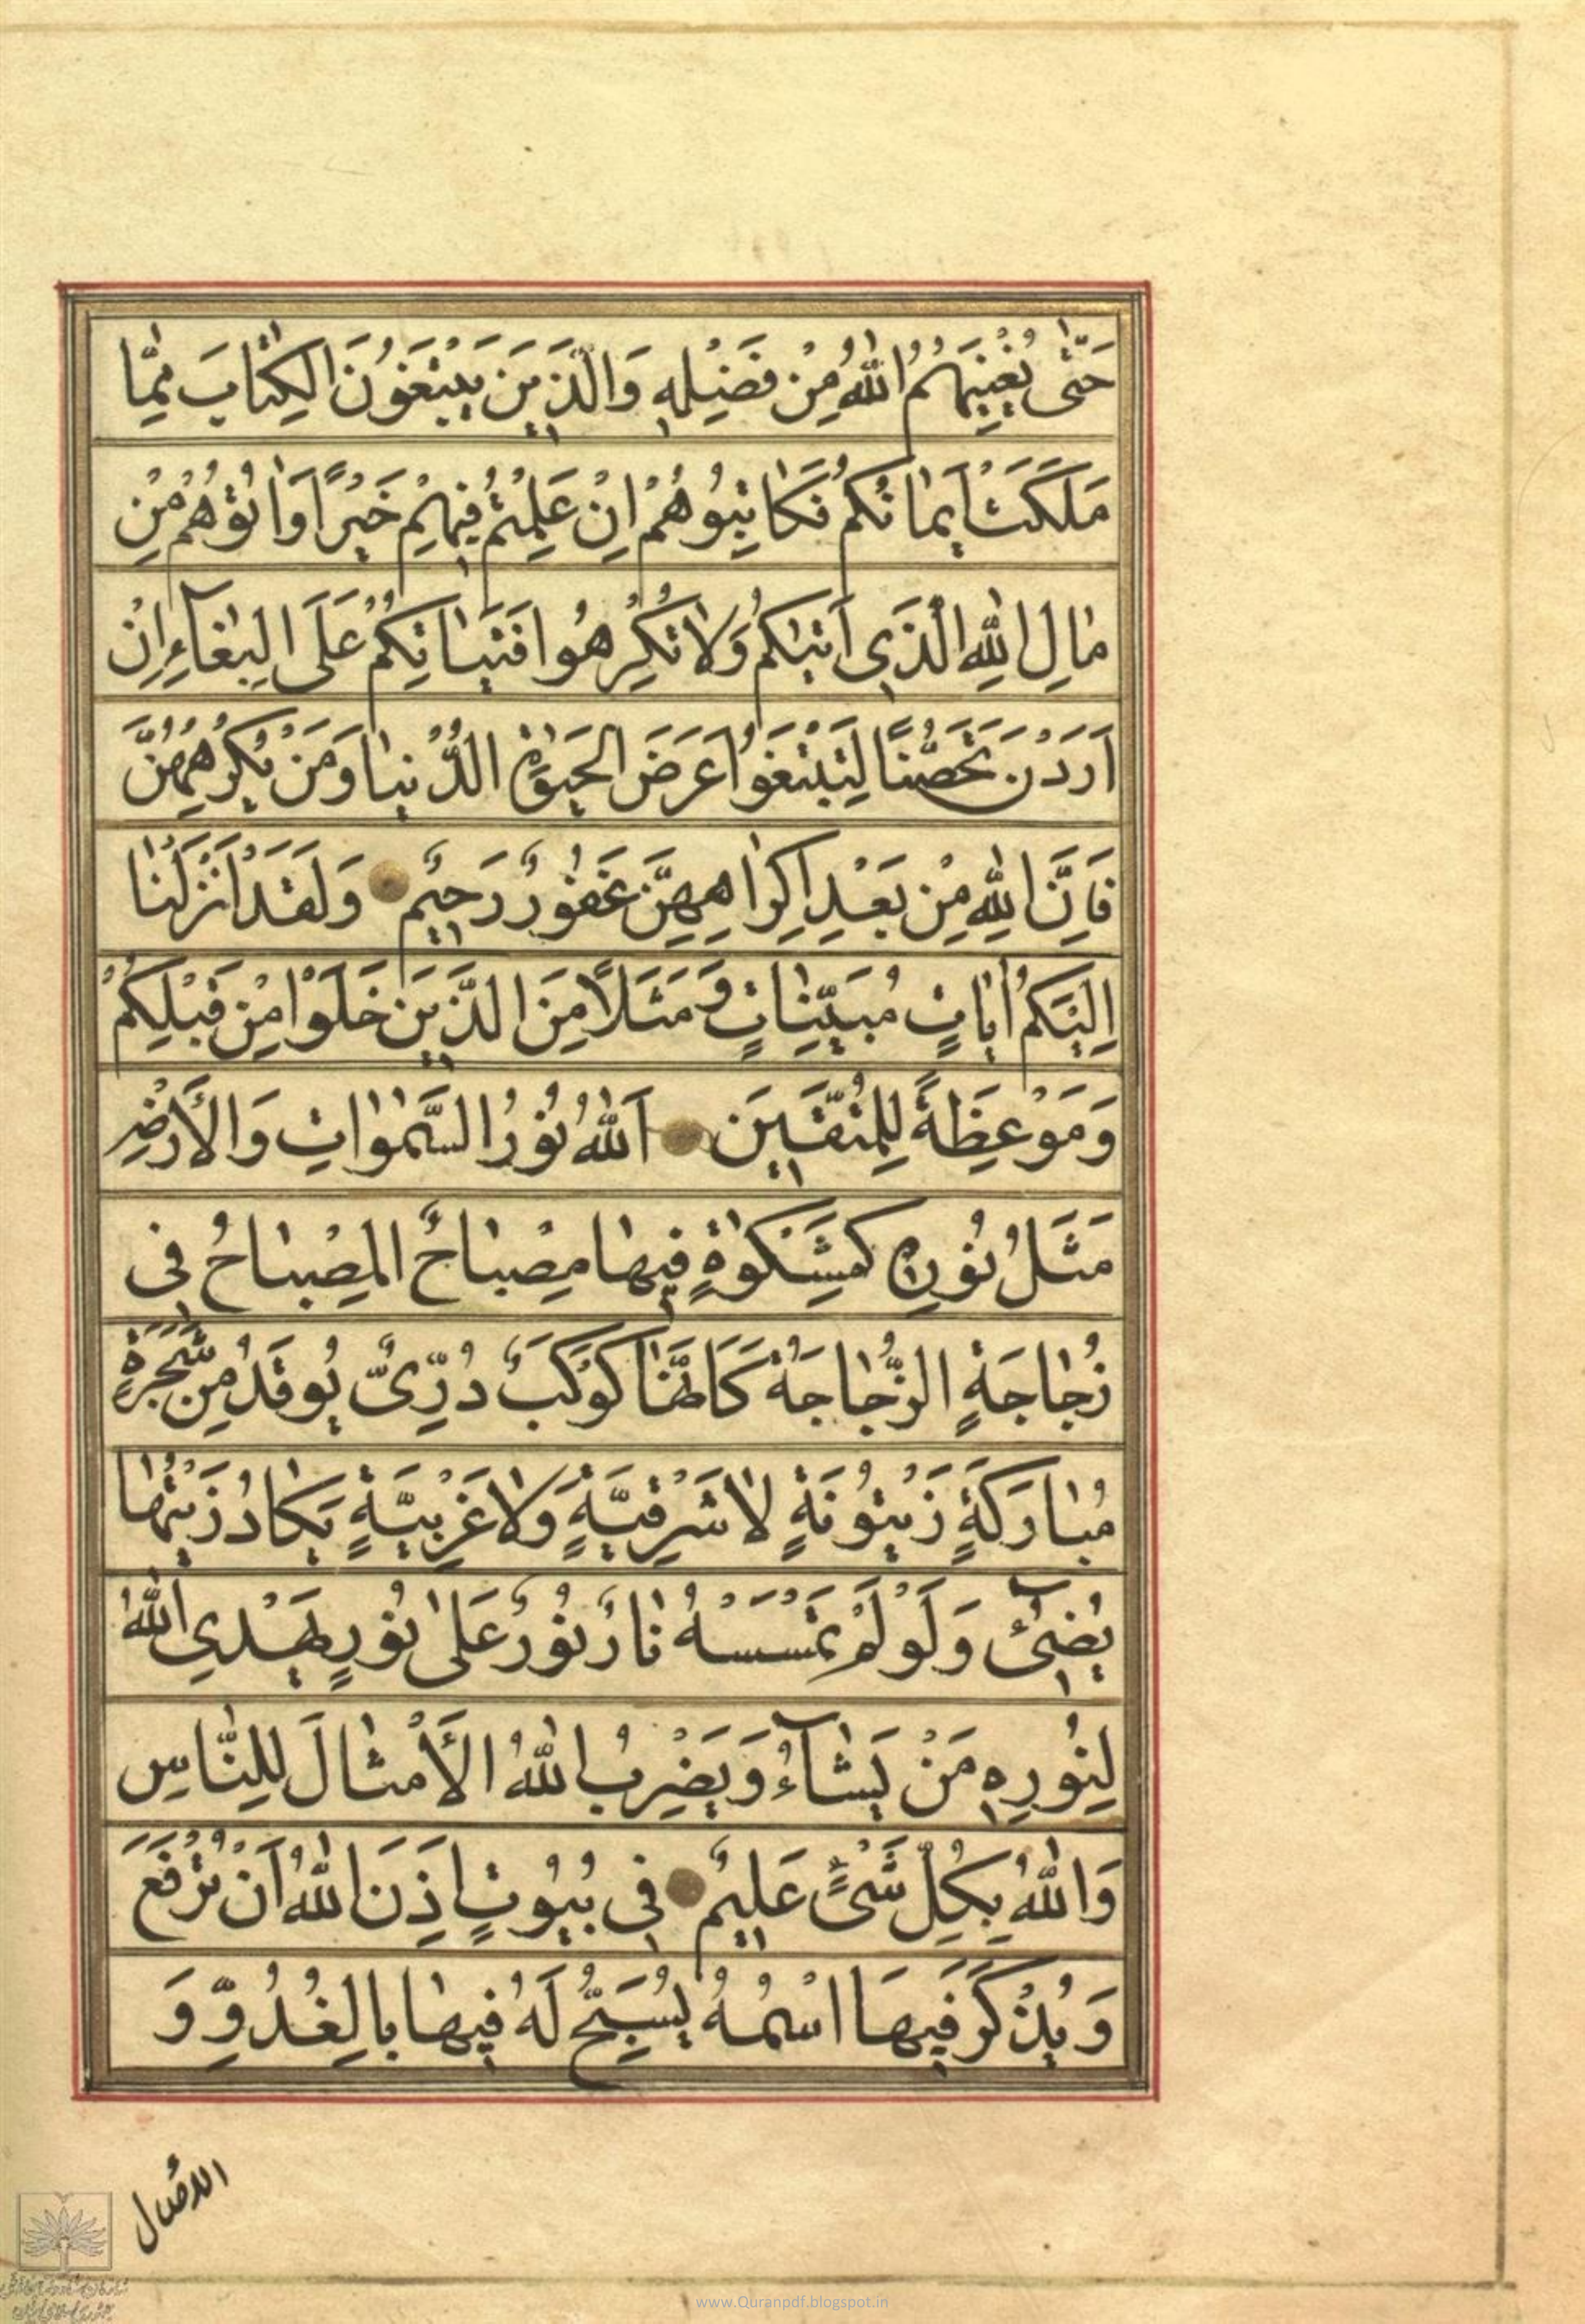 حَتّٰى يُغْنِيَهُمُ اللّٰهُ مِنْ فَضْلِهِ وَالَّذِينَ يَبْتَغُونَ الكِتٰابَ مِمّٰا
مَلَكَتْ اَيْمٰانُكُمْ فَكٰاتِبُوهُمْ اِنْ عَلِمْتُمْ فِيهِمْ خَيْرًا وَاٰتُوهُمْ مِنْ
مٰالِ اللّٰهِ الَّذِي اٰتٰيكُمْ وَلٰا تُكْرِهُوا فَتَيٰاتِكُمْ عَلَى البِغٰٓاءِ اِنْ
اَرَدْنَ تَحَصُّنًا لِتَبْتَغُوا عَرَضَ الحَيٰوةِ الدُّنْيٰا وَمَنْ يُكْرِهْهُنَّ
فَاِنَّ اللّٰهَ مِنْ بَعْدِ اِكْرٰاهِهِنَّ غَفُورٌ رَحِيمٌ وَلَقَدْ اَنْزَلْنٰا
اِلَيْكُمْ اٰيٰاتٍ مُبَيِّنٰاتٍ وَ مَثَلًا مِنَ الَّذِينَ خَلَوْا مِنْ قَبْلِكُمْ
وَمَوْعِظَةً لِلْمُتَّقِينَ اَللّٰهُ نُورُ السَّمٰوٰاتِ وَالْأَرْضِ
مَثَلُ نُورِهِ كَمِشْكٰوةٍ فِيهٰا مِصْبٰاحٌ المِصْبٰاحُ فِى
زُجٰاجَةٍ الزُّجٰاجَةُ كَاَنَّهٰا كَوْكَبٌ دُرِّىٌّ يُوقَدُ مِنْ شَجَرَةٍ
مُبٰارَكَةٍ زَيْتُونَةٍ لٰا شَرْقِيَّةٍ وَلٰا غَرْبِيَّةٍ يَكٰادُ زَيْتُهٰا
يُضِيٓئُ وَلَوْ لَمْ تَمْسَسْهُ نٰارٌ نُورٌ عَلٰى نُورٍ يَهْدِي اللّٰهُ
لِنُورِهِ مَنْ يَشٰٓاءُ وَيَضْرِبُ اللّٰهُ الْأَمْثٰالَ لِلنّٰاسِ
وَاللّٰهُ بِكُلِّ شَىْءٍ عَلِيمٌ فِى بُيُوتٍ اَذِنَ اللّٰهُ اَنْ تُرْفَعَ
وَيُذْكَرَ فِيهَا اسْمُهُ يُسَبِّحُ لَهُ فِيهٰا بِالغُدُوِّ وَ
www.Quranpdf.blogspot.in